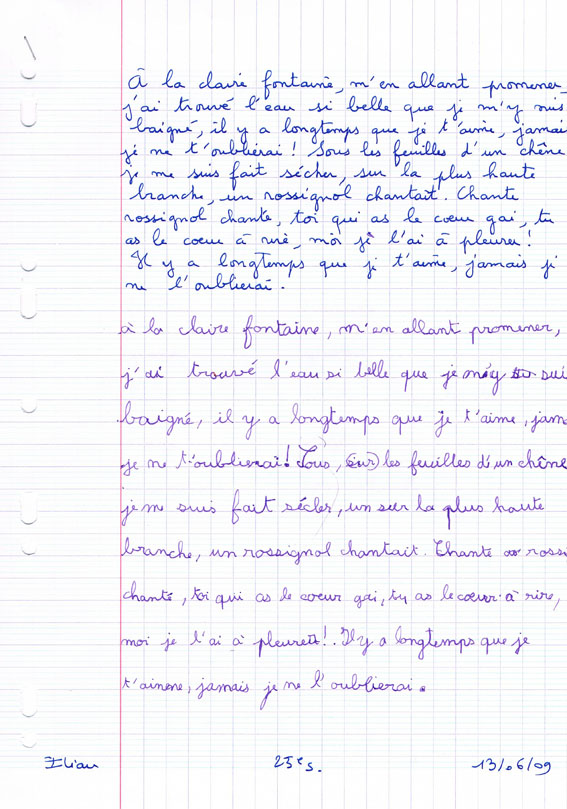 À la claire fontaine, m'en allant promener,
j'ai trouvé l'eau si belle que je m'y suis
baigné, il y a longtemps que je t'aime, jamais
je ne t'oublierai ! Sous les feuilles d'un chêne
je me suis fait sécher, sur la plus haute
branche, un rossignol chantait. Chante
rossignol chante, toi qui as le coeur gai, tu
as le coeur à rire, moi je l'ai à pleurer !
Il y a longtemps que je t'aime, jamais je
ne l'oublierai.
à la claire fontaine, m'en allant promener,
j'ai trouvé l'eau si belle que je sui
baigné, il y a longtemps que je t'aime, jam
je ne t'oublierai! Sous, (sur) les feuilles d'un chêne
je me suis fait sécler, un sur la plus haute
branche, un rossignol chantait. Chante rossi
chante, toi qui as le coeur gai, tu as le coeur à rire,
moi je l'ai à pleurer!. Il y a longtemps que je
t'aimene, jamais je ne l'oublierai.
Elian 25 e s. 13/06/09